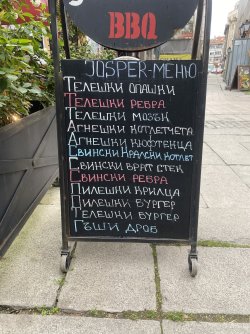 BBQ
JOSPER-МЕНЮ
ТЕЛЕШКИ ОПАШКИ
ТЕЛЕШКИ РЕБРА
ТЕЛЕШКИ МОЗЪК
АГНЕШКИ КОТЛЕТЧЕТА
АГНЕШКИ КЮФТЕНЦА
СВИНСКИ КРАЛСКИ КОТЛЕТ
СВИНСКИ ВРАТ СТЕК
СВИНСКИ РЕБРА
ПИЛЕШКИ КРИЛЦА
ПИЛЕШКИ БУРГЕР
ТЕЛЕШКИ БУРГЕР
ГЪШИ ДРОБ